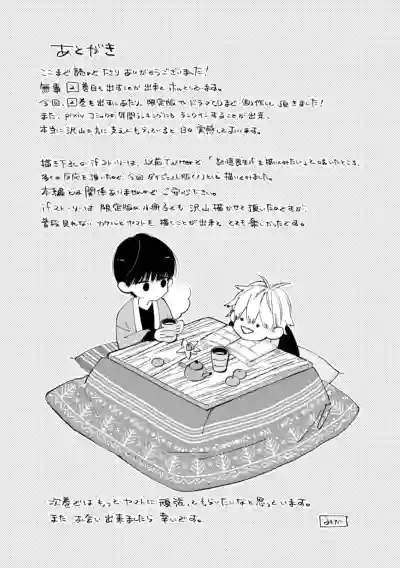 あとがき
ここまで読んで下さりありがとうございました!
無事②巻目も出すことが出来てホッとしてます。
今回、②巻を出すにあたり、限定版やドラマCDまで制作して頂きました!
また、pixivコミックの年間ランキングにもランクインすることが出来、
本当に沢山の方に支えてもらっているなと日々実感しております。
描き下ろしのifストーリーは、以前Twitterで「記憶喪失を描いてみたい」と呟いたところ、
多くの反応を頂いたので、今回ダイジェスト版(?)にして描いてみました。
本編とは関係ありませんのでご安心ださい。
ifストーリーは限定版の小冊子でも沢山描かせて頂いたのですが、
普段見れないカケルとヤマトを描くことが出来て、とても楽しかったです。
次巻ではもっとヤマトに頑張ってもらいたいなと思っています。
またお会い出来ましたら幸いです。